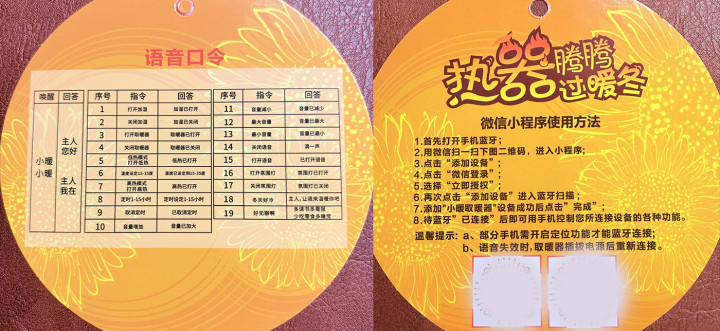 语音口令
唤醒 回答 序号 指令 回答 序号 指令 回答
小暖小暖 主人您好 主人我在
1 打开加湿 加湿已打开
2 关闭加湿 加湿已关闭
3 打开取暖器 取暖器已打开
4 关闭取暖器 取暖器已关闭
5 低热模式 打开低热 低热已打开
6 温度设定15-35度 温度设定15-35度
7 高热模式 打开高热 高热已打开
8 定时1-15小时 定时设定1-15小时
9 取消定时 已取消定时
10 音量增加 音量已加大
11 音量减小 音量已减少
12 最大音量 音量已最大
13 最小音量 音量已最小
14 关闭语音 滴一声
15 打开语音 已打开语音
16 打开氛围灯 氛围灯已打开
17 关闭氛围灯 氛围灯已关闭
18 冬天好冷 主人,让我来温暖你吧
19 好无聊啊 多读书多看报 少吃零食多睡觉
热器腾腾
过暖冬
微信小程序使用方法
1.首先打开手机蓝牙;
2.用微信扫一扫下图二维码，进入小程序;
3.点击“添加设备”;
4.点击“微信登录”;
5.选择“立即授权”;
6.再次点击“添加设备”进入蓝牙扫描;
7.添加"小暖取暖器"设备成功后点击”完成”;
8.待蓝牙”已连接”后即可用手机控制您所连接设备的各种功能。
温馨提示: a、部分手机需开启定位功能才能蓝牙连接;
b、语音失效时,取暖器插拔电源后重新连接。